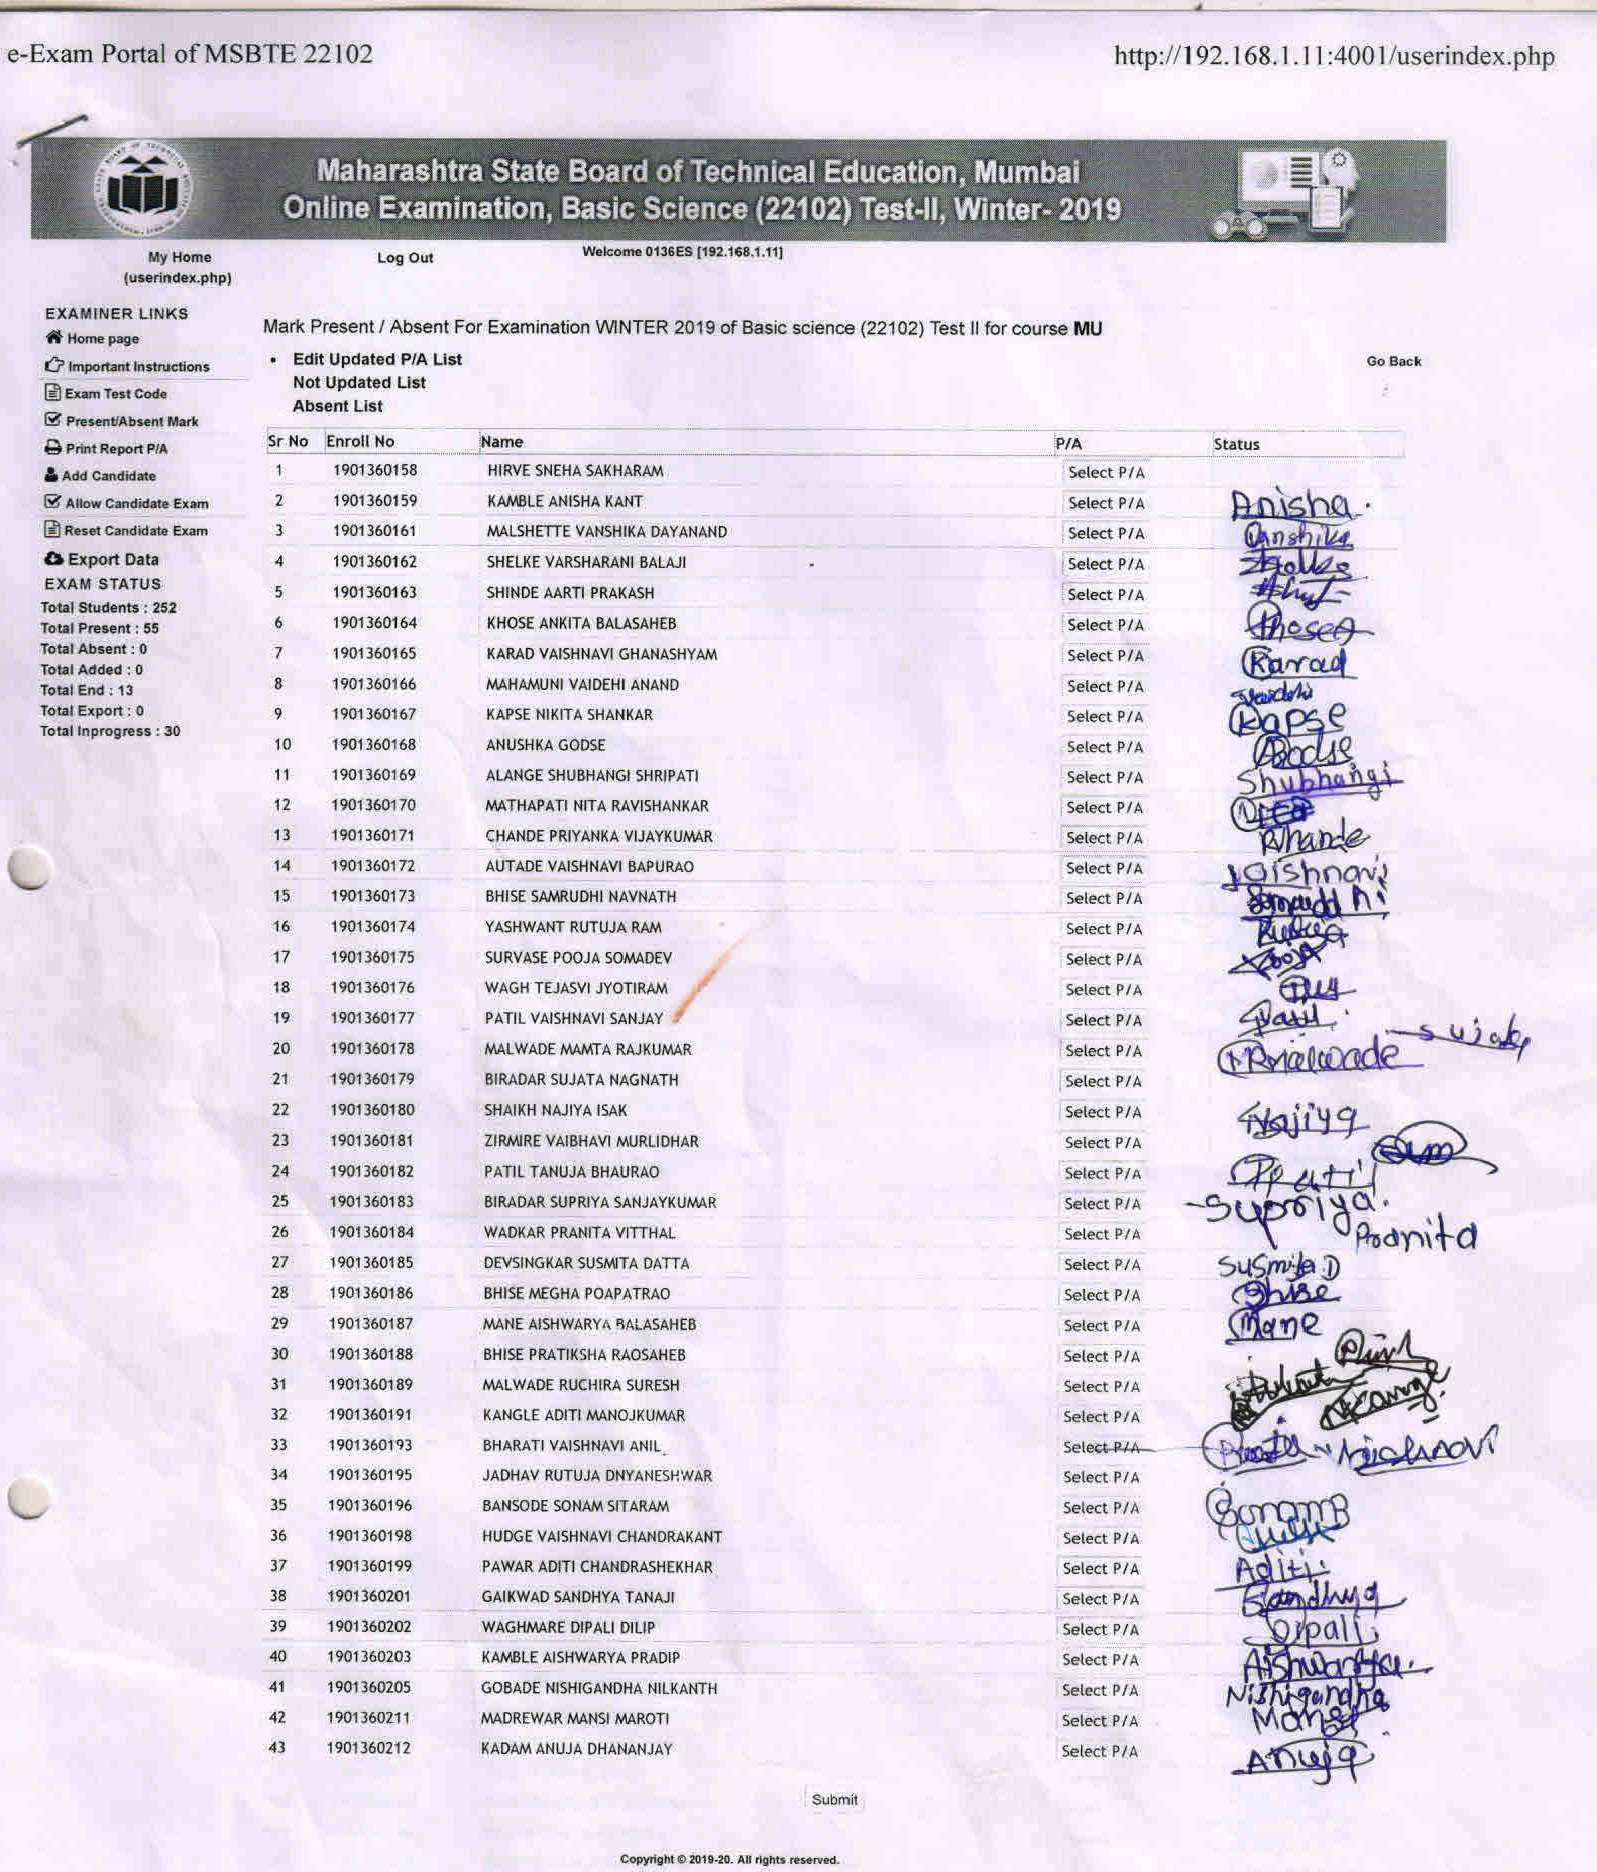 e-Exam Portal of MSBTE 22102 http://192.168.1.11:4001/userindex.php
Maharashtra State Board of Technical Education, Mumbai
Online Examination, Basic Science (22102) Test-II, Winter- 2019
My Home Log Out Welcome 0136ES [192.168.1.11]
(userindex.php)
EXAMINER LINKS
Home page
Important Instructions
Exam Test Code
Present/Absent Mark
Print Report P/A
Add Candidate
Allow Candidate Exam
Reset Candidate Exam
Export Data
EXAM STATUS
Total Students : 252
Total Present : 55
Total Absent : 0
Total Added : 0
Total End : 13
Total Export : 0
Total Inprogress : 30
Mark Present / Absent For Examination WINTER 2019 of Basic science (22102) Test II for course MU
• Edit Updated P/A List
Go Back
Not Updated List
Absent List
Sr No Enroll No Name P/A Status
1 1901360158 HIRVE SNEHA SAKHARAM Select P/A
2 1901360159 KAMBLE ANISHA KANT Select P/A Anisha.
3 1901360161 MALSHETTE VANSHIKA DAYANAND Select P/A Vanshika
4 1901360162 SHELKE VARSHARANI BALAJI Select P/A
5 1901360163 SHINDE AARTI PRAKASH Select P/A
6 1901360164 KHOSE ANKITA BALASAHEB Select P/A
7 1901360165 KARAD VAISHNAVI GHANASHYAM Select P/A Karad
8 1901360166 MAHAMUNI VAIDEHI ANAND Select P/A Vaidehi
9 1901360167 KAPSE NIKITA SHANKAR Select P/A Kapse
10 1901360168 ANUSHKA GODSE Select P/A
11 1901360169 ALANGE SHUBHANGI SHRIPATI Select P/A Shubhangi
12 1901360170 MATHAPATI NITA RAVISHANKAR Select P/A
13 1901360171 CHANDE PRIYANKA VIJAYKUMAR Select P/A
14 1901360172 AUTADE VAISHNAVI BAPURAO Select P/A Vaishnavi
15 1901360173 BHISE SAMRUDHI NAVNATH Select P/A
16 1901360174 YASHWANT RUTUJA RAM Select P/A Rutuja
17 1901360175 SURVASE POOJA SOMADEV Select P/A Pooja
18 1901360176 WAGH TEJASVI JYOTIRAM Select P/A
19 1901360177 PATIL VAISHNAVI SANJAY Select P/A Patil
20 1901360178 MALWADE MAMTA RAJKUMAR Select P/A Malwade
21 1901360179 BIRADAR SUJATA NAGNATH Select P/A Sujata
22 1901360180 SHAIKH NAJIYA ISAK Select P/A Najiya
23 1901360181 ZIRMIRE VAIBHAVI MURLIDHAR Select P/A
24 1901360182 PATIL TANUJA BHAURAO Select P/A
25 1901360183 BIRADAR SUPRIYA SANJAYKUMAR Select P/A Supriya.
26 1901360184 WADKAR PRANITA VITTHAL Select P/A Pranita
27 1901360185 DEVSINGKAR SUSMITA DATTA Select P/A Susmita D
28 1901360186 BHISE MEGHA POAPATRAO Select P/A Bhise
29 1901360187 MANE AISHWARYA BALASAHEB Select P/A Mane
30 1901360188 BHISE PRATIKSHA RAOSAHEB Select P/A
31 1901360189 MALWADE RUCHIRA SURESH Select P/A
32 1901360191 KANGLE ADITI MANOJKUMAR Select P/A
33 1901360193 BHARATI VAISHNAVI ANIL Select P/A Vaishnavi
34 1901360195 JADHAV RUTUJA DNYANESHWAR Select P/A
35 1901360196 BANSODE SONAM SITARAM Select P/A SonamB
36 1901360198 HUDGE VAISHNAVI CHANDRAKANT Select P/A
37 1901360199 PAWAR ADITI CHANDRASHEKHAR Select P/A Aditi
38 1901360201 GAIKWAD SANDHYA TANAJI Select P/A Sandhya
39 1901360202 WAGHMARE DIPALI DILIP Select P/A Dipali
40 1901360203 KAMBLE AISHWARYA PRADIP Select P/A Aishwarya.
41 1901360205 GOBADE NISHIGANDHA NILKANTH Select P/A Nishigandha
42 1901360211 MADREWAR MANSI MAROTI Select P/A Mansi
43 1901360212 KADAM ANUJA DHANANJAY Select P/A Anuja
Submit
Copyright © 2019-20. All rights reserved.